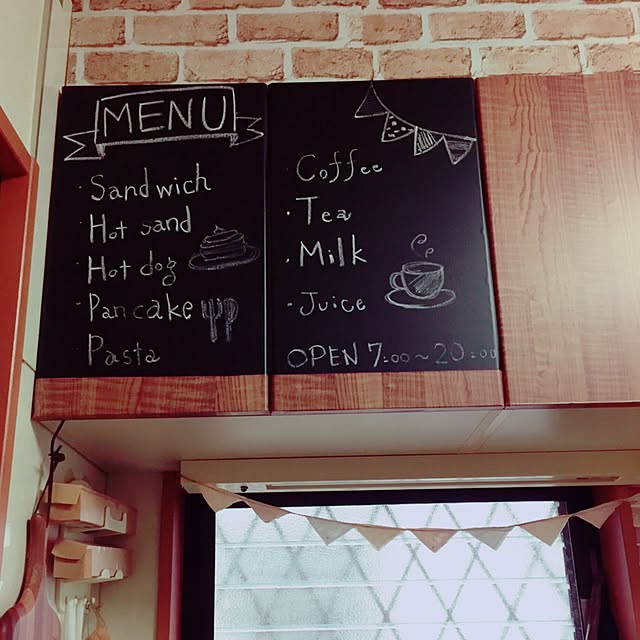 MENU
· Sandwich
· Hot sand
· Hot dog
· Pancake
Pasta
· Coffee
· Tea
· Milk
· Juice
OPEN 7:00~20:00